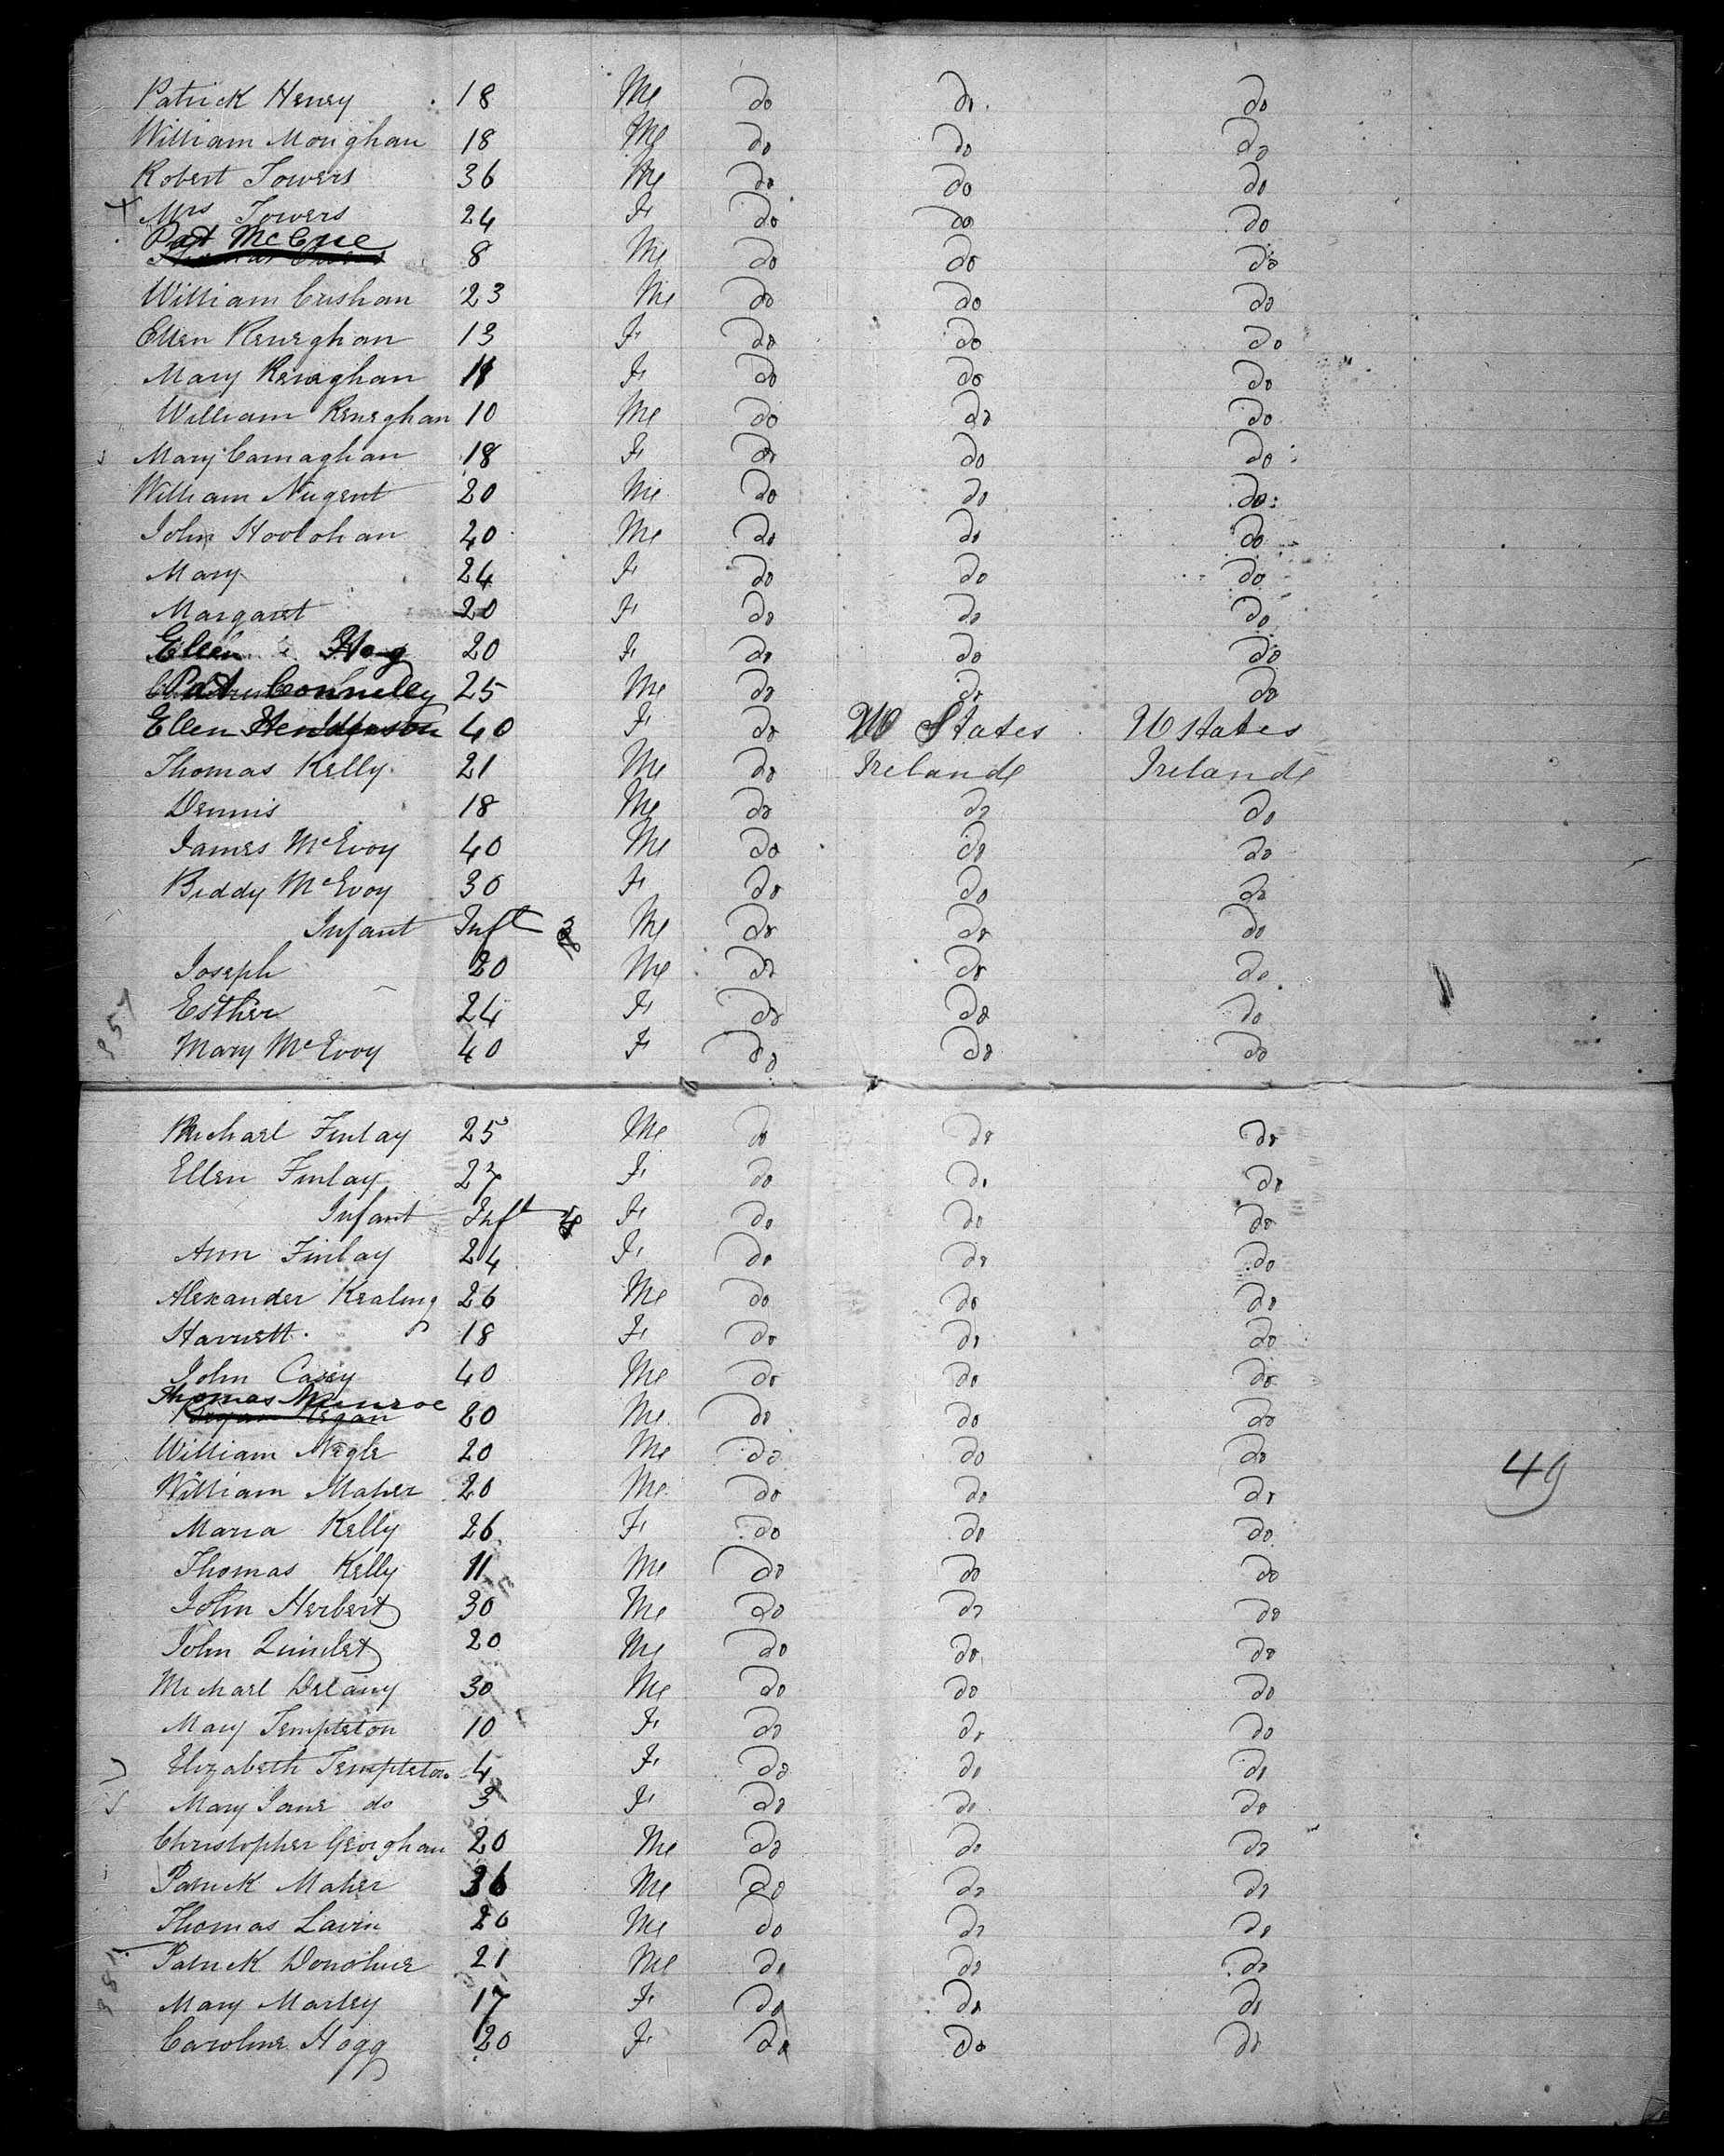 Patrick Henry 18 Me do do do
William Monghan 18 Me do do do
Robert Towers 36 Me do do do
Mrs Towers 24 F do do do
Pat McCue
8 Me do do do
William Cushan 23 Me do do do
Ellen Keneghan 13 F do do do
Mary Keneghan 11 F do do do
William Keneghan 10 Me do do do
Mary Carnaghan 18 F do do do
William Nugent 20 Me do do do
John Hoolohan 20 Me do do do
Mary 24 F do do do
Margaret 20 F do do do
Ellen Hog 20 F do do do
Pat Connelly 25 Me do do do
Ellen Henderson 40 F do U States U States
Thomas Kelly 21 Me do Irelande Irelande
Dennis 18 Me do do do
James McEvoy 40 Me do do do
Biddy McEvoy 30 F do do do
Infant Inft Me do do do
Joseph 20 Me do do do
Esther 24 F do do do
Mary McEvoy 40 F do do do
Michael Finlay 25 Me do do do
Ellen Finlay 27 F do do do
Infant Inft F do do do
Ann Finlay 24 F do do do
Alexander Kealing 26 Me do do do
Harriett 18 F do do do
John Casey 40 Me do do do
Thomas Munroe
Regan 20 Me do do do
William Nagle 20 Me do do do
William Maher 20 Me do do do
Maria Kelly 26 F do do do
Thomas Kelly 11 Me do do do
John Herbert 30 Me do do do
John 20 Me do do do
Michael Delany 30 Me do do do
Mary Templeton 10 F do do do
Elizabeth Templeton 4 F do do do
Mary Jane do 3 F do do do
Christopher Geoighan 20 Me do do do
Patrick Maher 36 Me do do do
Thomas Lavin 20 Me do do do
Patrick Donohue 21 Me do do do
Mary Marley 17 F do do do
Caroline Hogg 20 F do do do
49